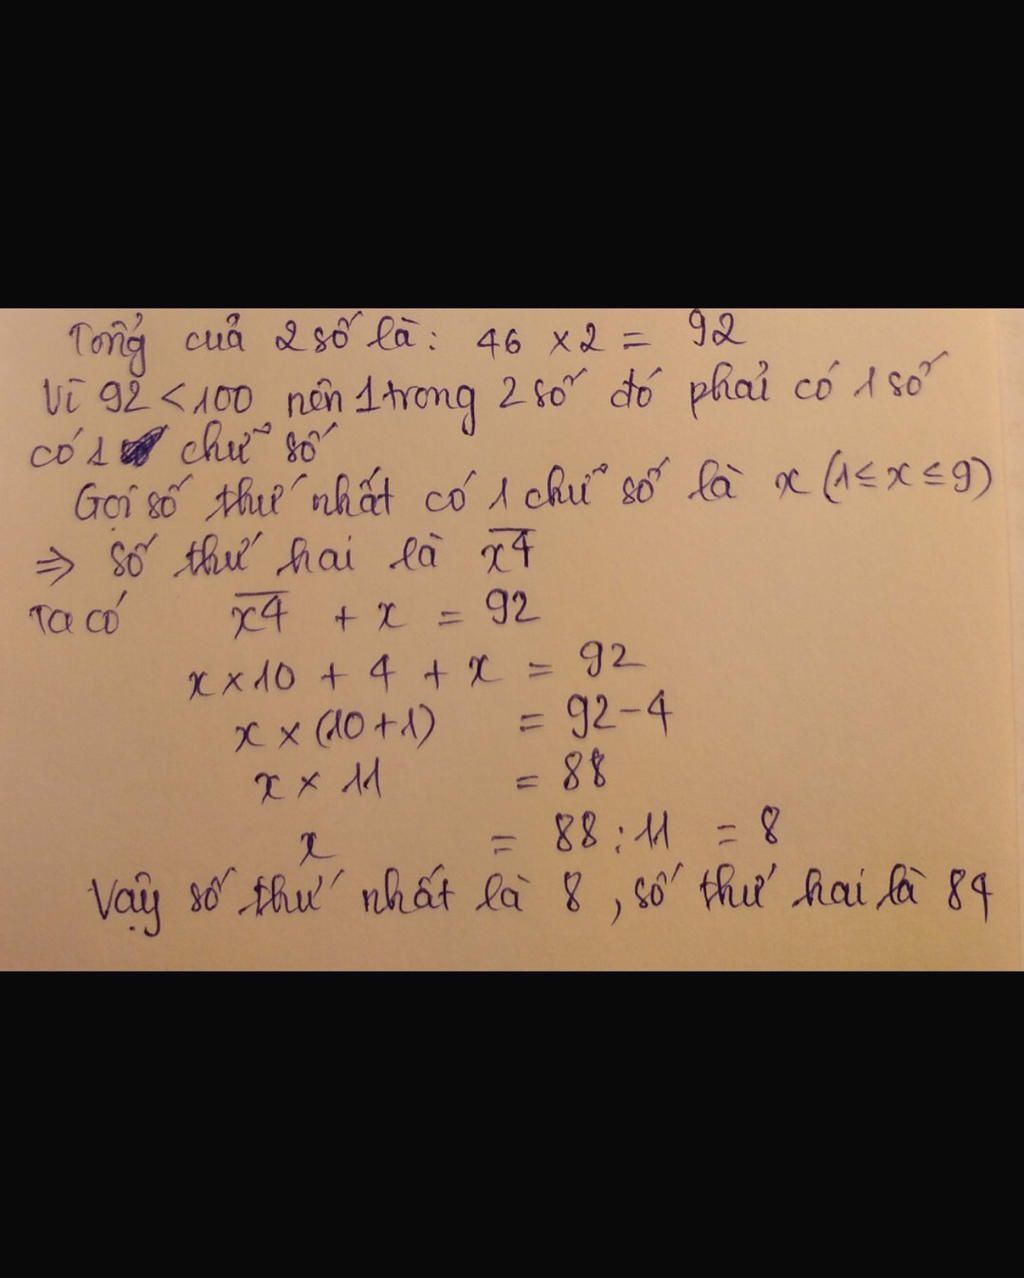 Tổng cuả 2 số là: 46 × 2 = 92
Vì 92 < 100 nên 1 trong 2 số đó phải có 1 số
có 1 chữ số
Gọi số thứ nhất có 1 chữ số là x (1 ≤ x ≤ 9)
⇒ số thứ hai là x̅4̅
Ta có x̅4̅ + x = 92
x × 10 + 4 + x = 92
x × (10 + 1) = 92 - 4
x × 11 = 88
x = 88 : 11 = 8
Vậy số thứ nhất là 8, số thứ hai là 84